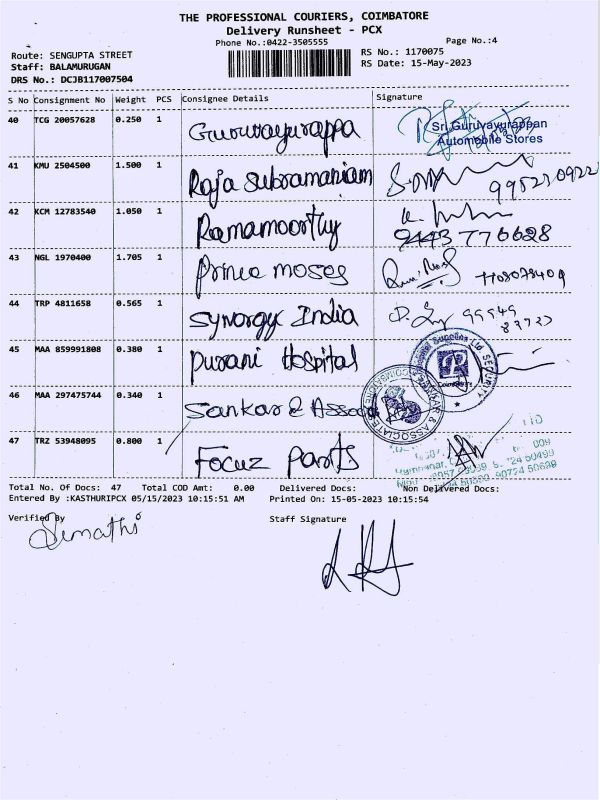 THE PROFESSIONAL COURIERS, COIMBATORE
Delivery Runsheet - PCX
Phone No.:0422-3505555 Page No.:4
Route: SENGUPTA STREET RS No.: 1170075
Staff: BALAMURUGAN RS Date: 15-May-2023
DRS No.: DCJB117007504
S No Consignment No Weight PCS Consignee Details Signature
40 TCG 20057628 0.250 1 Guruvayurappa
Sri Guruvayurappan
Automobile Stores
41 KMU 2504500 1.500 1 Raja Subramaniam
42 KCM 12783540 1.050 1 Ramamoorthy
9443 776628
43 NGL 1970400 1.705 1 Prince moses
44 TRP 4811658 0.565 1 Synorgy India
45 MAA 859991808 0.380 1 Purani Hospital
46 MAA 297475744 0.340 1 Sankar & Assoc
47 TRZ 53948095 0.800 1 Focuz Parts
Total No. Of Docs: 47 Total COD Amt: 0.00 Delivered Docs: Non Delivered Docs:
Entered By :KASTHURIPCX 05/15/2023 10:15:51 AM Printed On: 15-05-2023 10:15:54
Verified By Staff Signature